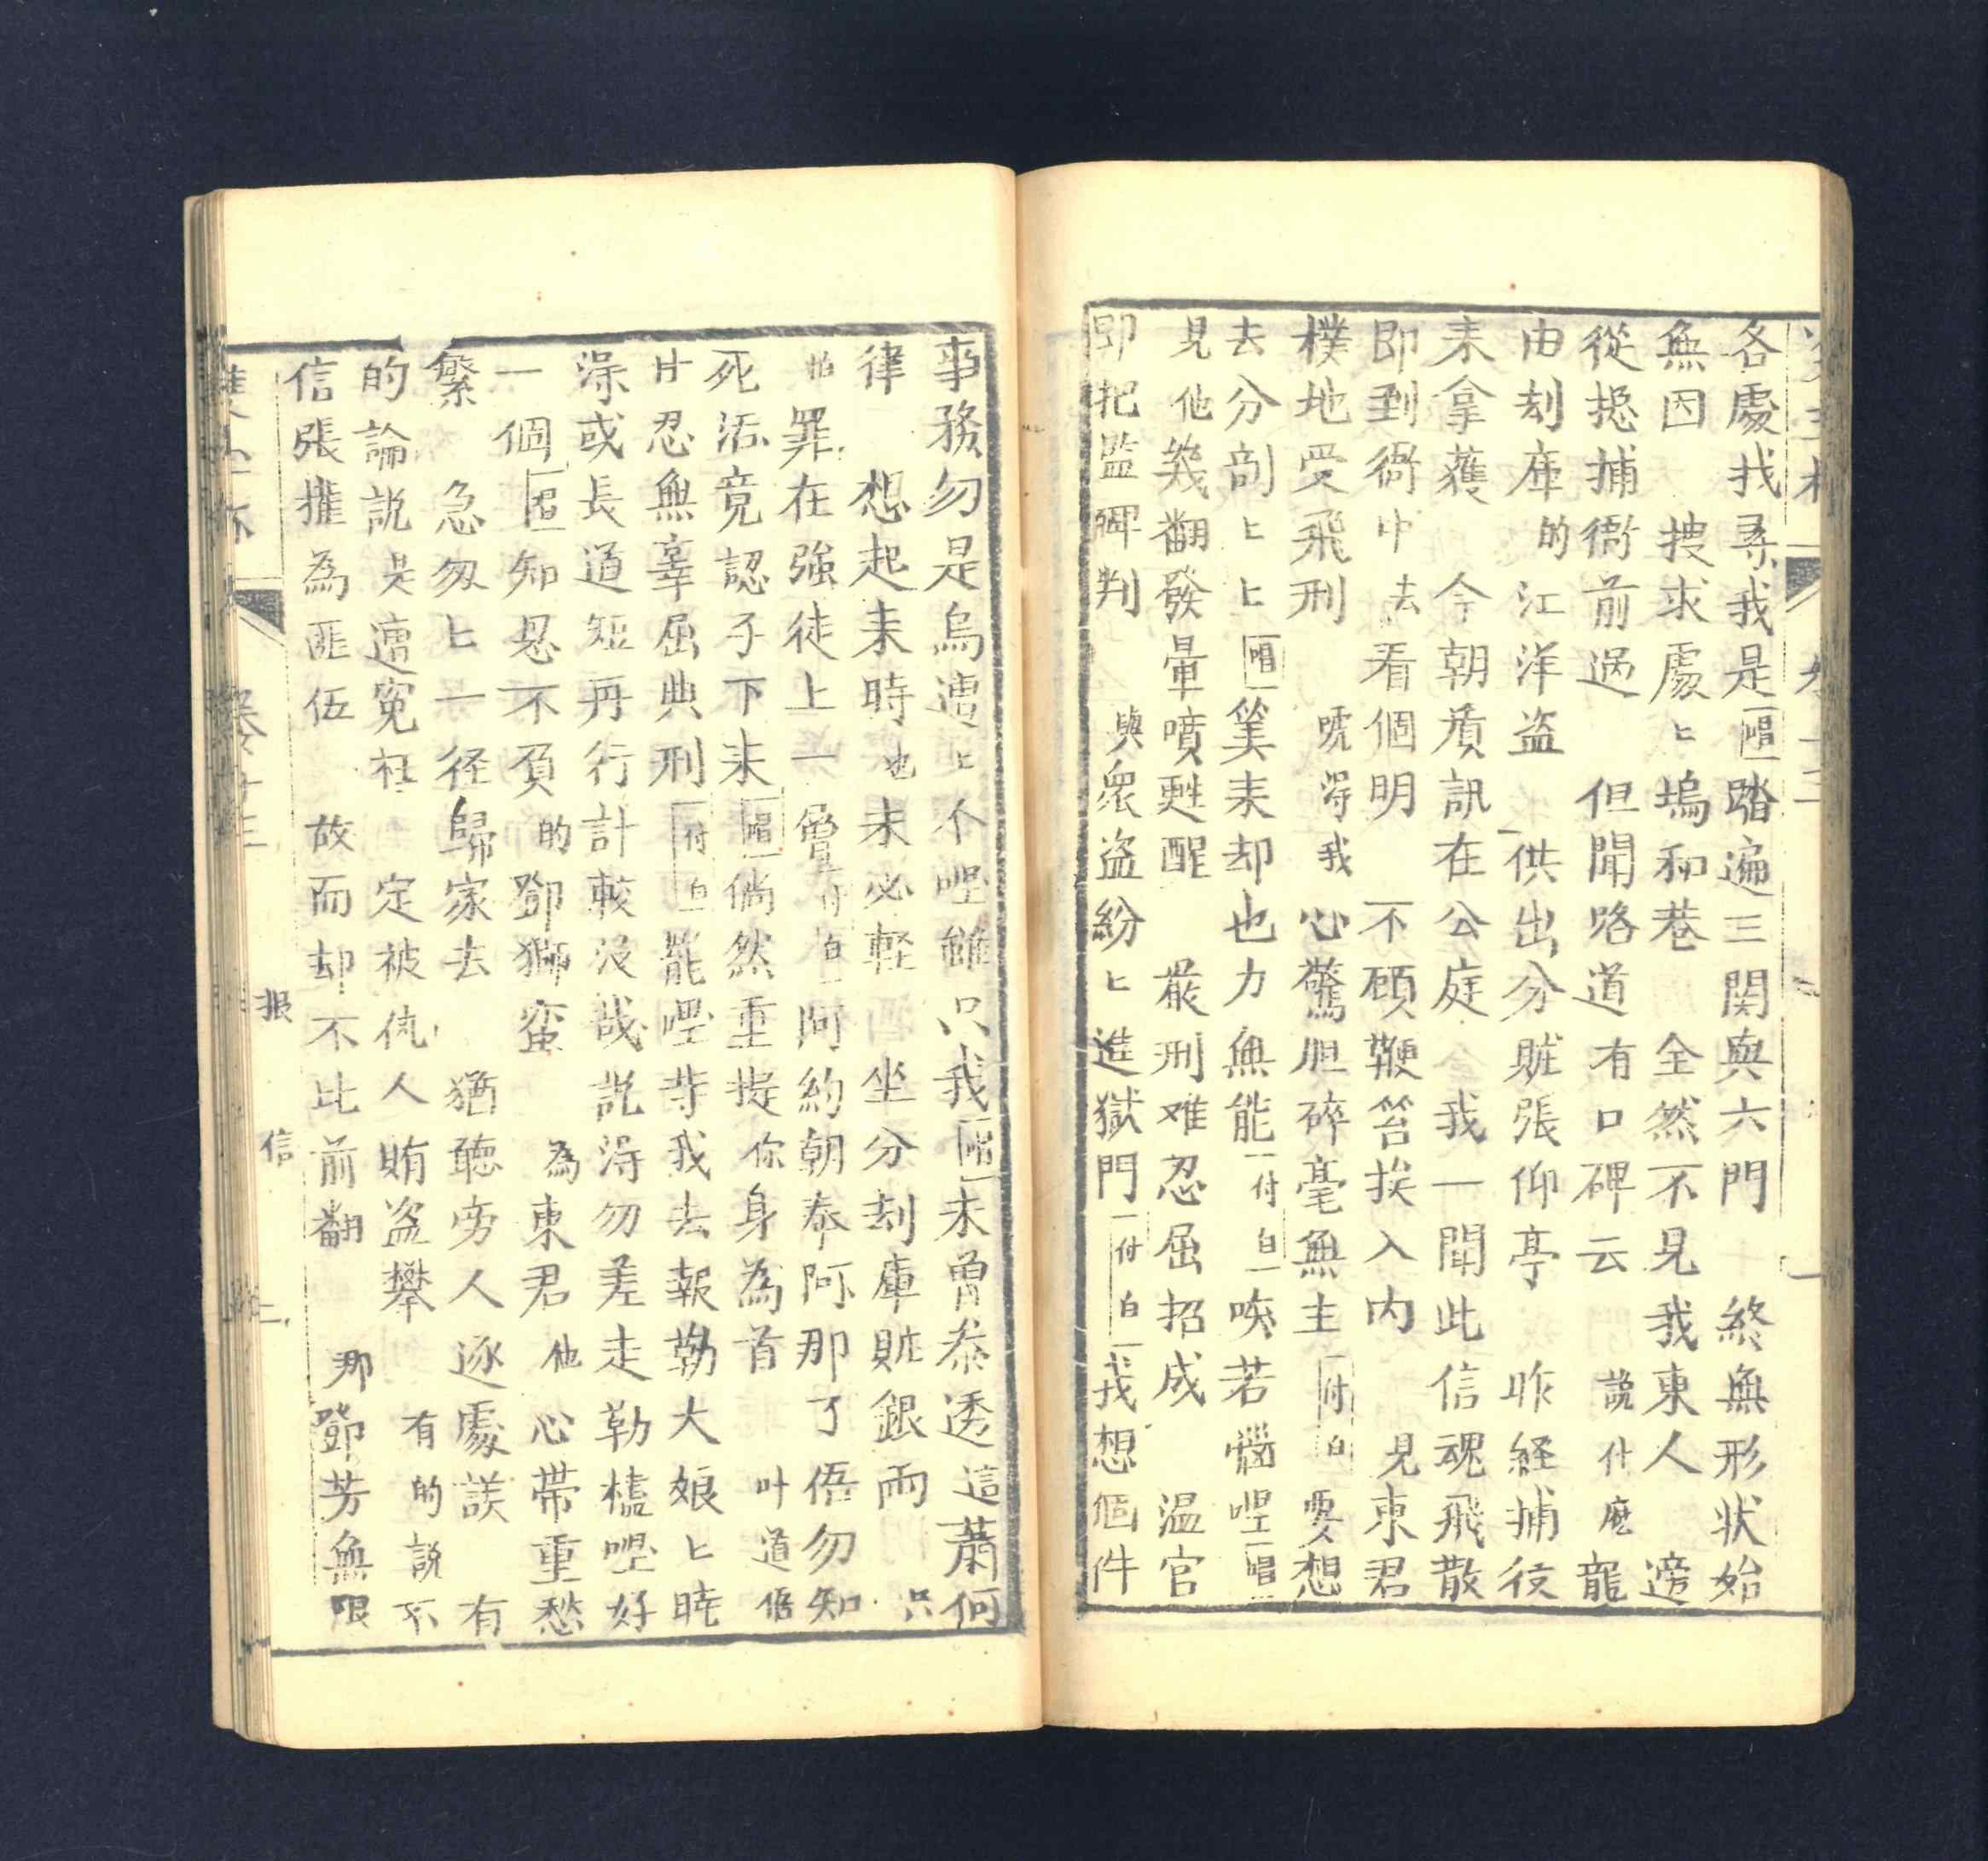 各處找尋我是唱踏遍三関與六門　終無形状始
無因　搜求處〻塢和巷　全然不見我東人　適
從捴捕衙前過　但聞咯道有口碑云　說什庅龍
由刼库的江洋盗　供出分贓張仰亭　昨経捕役
来拿獲　今朝质訊在公庭　我一聞此信魂飛散
即到衙中去看個明　不顧鞭笞挨入内　見東君
樸地受飛刑　唬淂我心驚胆碎毫無主付白要想
去分剖〻〻唱筭来却也力無能付白唤若惱哩唱
見他幾翻發暈噴甦醒　嚴刑难忍屈招成　温官
即把監牌判　與衆盗紛〻進獄門付白我想個件
事務勿是烏遭〻不哩雖只我唱未曾泰透這蕭何
律　想起来時也未必軽　坐分刼庫贓銀兩　只
罪在強徒上一　付白阿約朝奉阿那了俉勿知
死活竟認子下来唱倘然重提你身為首　叶道俉
甘忍無辜屈典刑付白罷哩等我去報勒大娘〻暁
淂或長道短再行計較没哉説淂勿差走勒檯哩好
一個唱知恩不負的鄧獅蛮　為東君他心带重愁
繁　急匆〻一径歸家去　猶聴旁人逐處談　有
的論說是遭寃枉　定被仇人賄盗攀　有的說不
信張摧為匪伍　故而却不比前翻　那鄧芳無限
卷十三
报　信